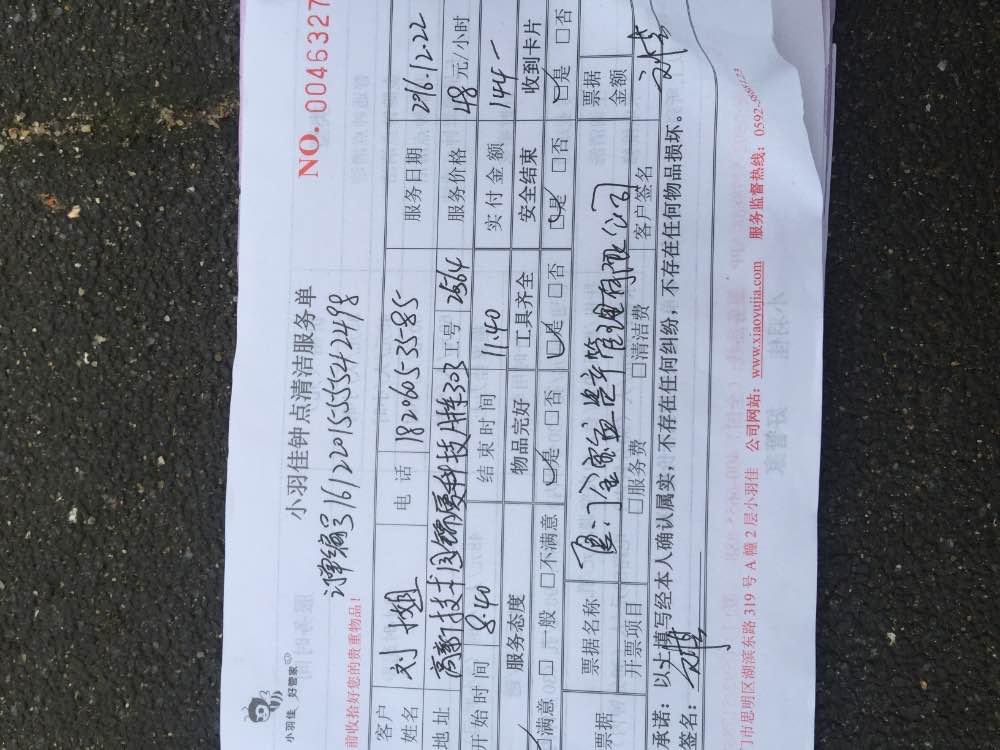 小羽佳 好管家
小羽佳钟点清洁服务单
NO. 0046327
订单编号1612201555542498
前收拾好您的贵重物品!
客户姓名 刘小姐 电话 18206053585 服务日期 2016.12.22
地址 高新技术园 303 工号 2564 服务价格 48元/小时
开始时间 8:40 结束时间 11:40 实付金额 144-
服务态度 物品完好 工具齐全 安全结束 收到卡片
满意 □一般 □不满意 □是 □否 □是 □否 □是 □否 □是 □否
票据 票据名称 管理有限公司 票据金额
开票项目 □服务费 □清洁费 客户签名
承诺:以上填写经本人确认属实,不存在任何纠纷,不存在任何物品损坏。
签名:
门市思明区湖滨东路 319 号 A 幢 2 层小羽佳 公司网站:www.xiaoyujia.com 服务监督热线:0592-